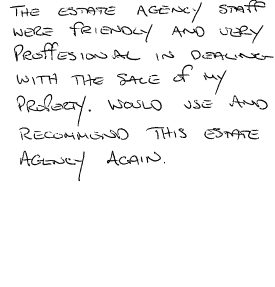 THE ESTATE AGENCY STAFF
WERE FRIENDLY AND VERY
PROFFESIONAL IN DEALING
WITH THE SALE of MY
PROPERTY. WOULD USE AND
RECOMMEND THIS ESTATE
AGENCY AGAIN.